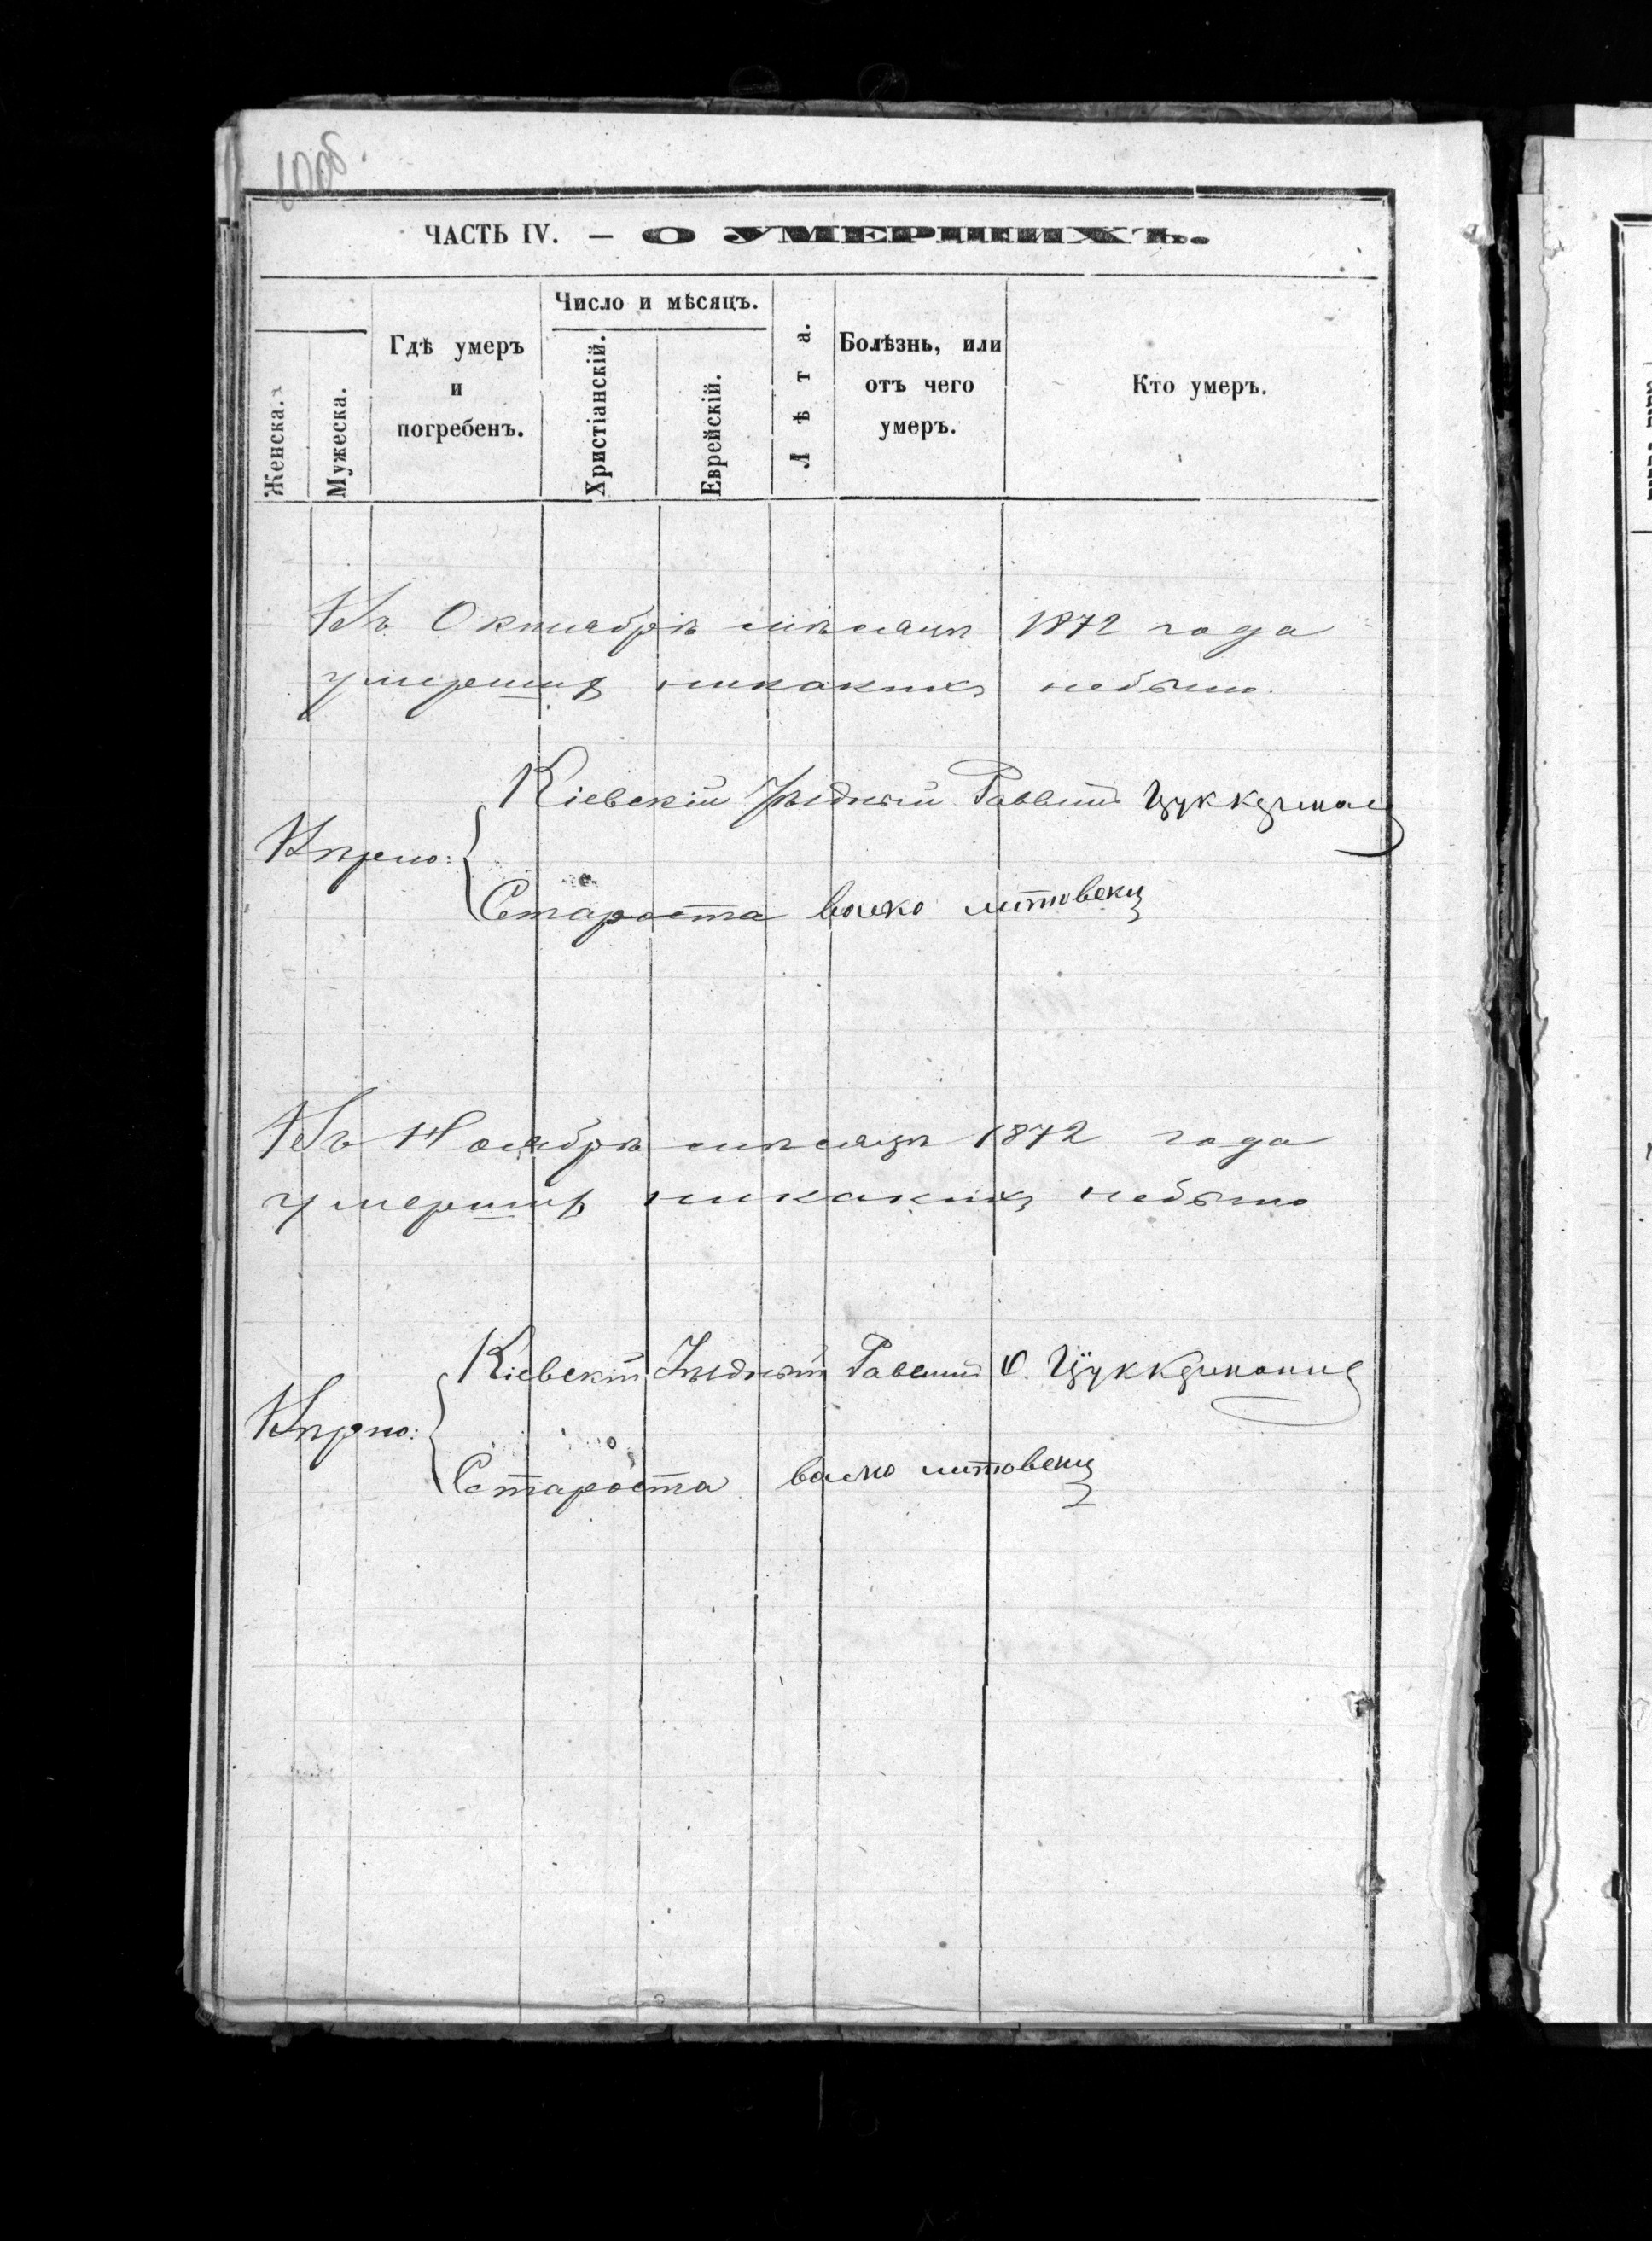 ЧАСТЬ IV. — О УМЕРШИХЪ.
Женска.
Мужеска.
Гдѣ умеръ
и
погребенъ.
Число и мѣсяцъ.
Христіанскій.
Еврейскій.
Лѣта.
Болѣзнь, или
отъ чего
умеръ.
Кто умеръ.
Въ Октябрѣ мѣсяцѣ 1872 года
умершихъ никакихъ небыло.
Кіевскій Уѣздный Раввинъ Цуккерман
Вѣрно:
Староста Волко Литовецъ
Въ Ноябрѣ мѣсяцѣ 1872 года
умершихъ никакихъ небыло
Кіевскій Уѣздный Раввинъ Цуккерманъ
Вѣрно:
Староста Волко Литовецъ